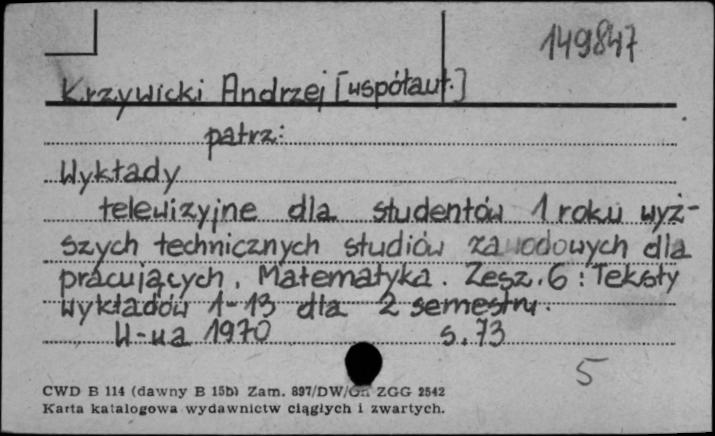 149847
Krzywicki Andrzej [współaut.]
patrz:
Wykłady
telewizyjne dla studentów 1 roku wyż-
szych technicznych studiów zawodowych dla
pracujących. Matematyka. Zesz. 6: Teksty
wykładów 1-13 dla 2 semestru.
W-wa 1970 s. 73
5
CWD B 114 (dawny B 15b) Zam. 897/DW/ ZGG 2542
Karta katalogowa wydawnictw ciągłych i zwartych.